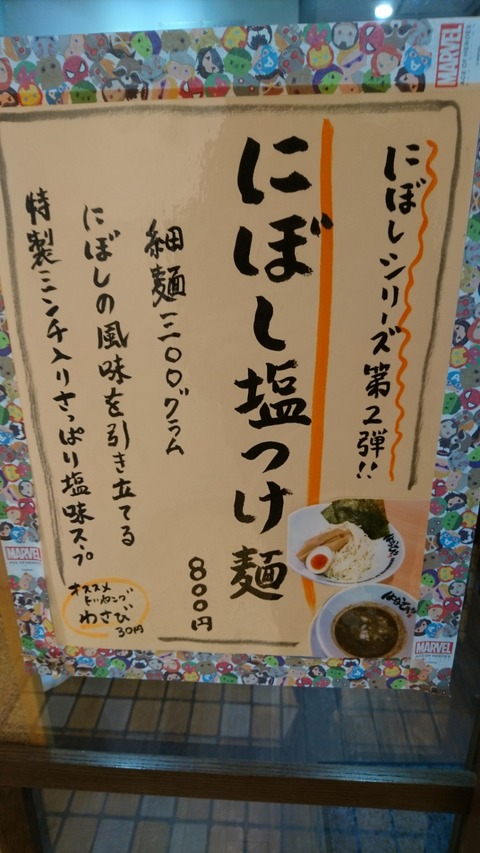 にぼしシリーズ第2弾!!
にぼし塩つけ麺
800円
細麺三〇〇グラム
にぼしの風味を引き立てる
特製ミンチ入りさっぱり塩味スープ
オススメ
トッピング
わさび
30円
MARVEL
MARVEL
MARVEL